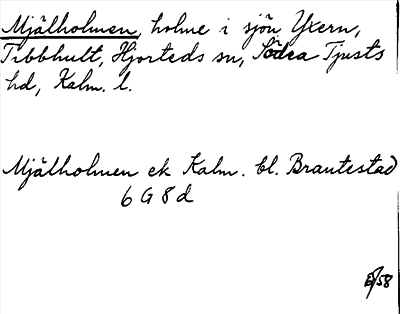 Mjälholmen, holme i sjön Yxern,
Tribbhult, Hjorteds sn, Södra Tjusts
hd, Kalm. l.
Mjälholmen ek Kalm. bl. Brantestad
6 G 8 d
E/58